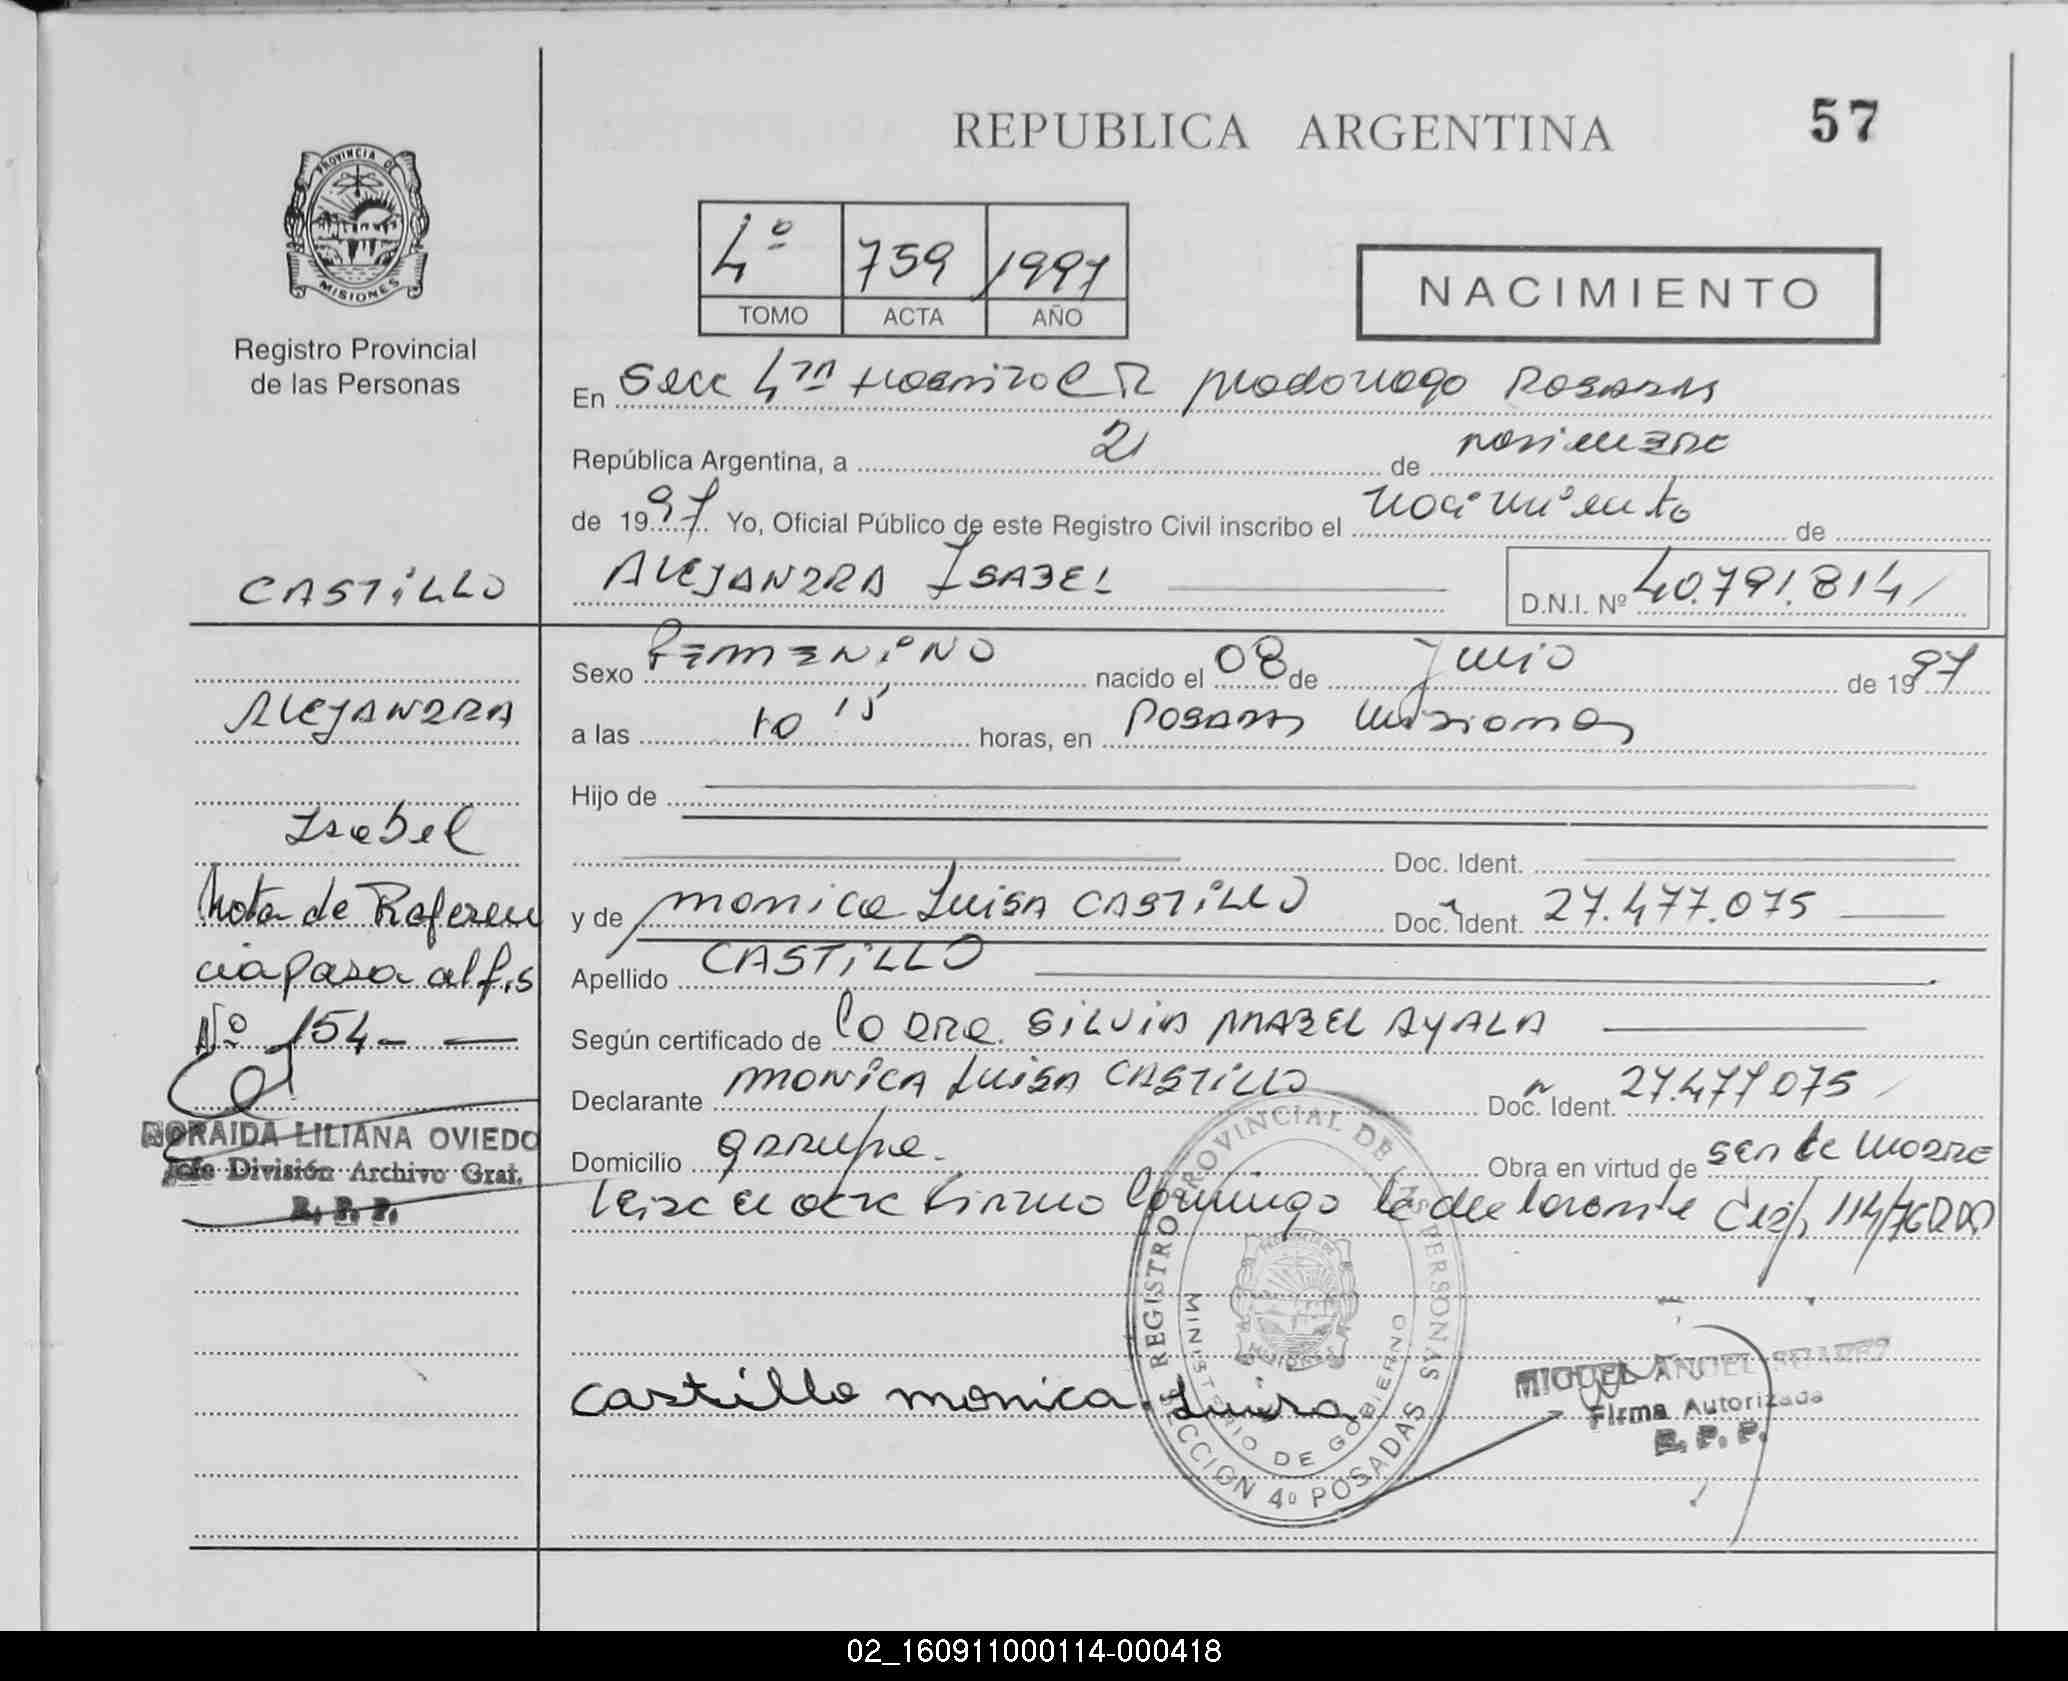 REPUBLICA ARGENTINA
57
PROVINCIA DE
MISIONES
Registro Provincial
de las Personas
4º 759 1997
TOMO ACTA AÑO
NACIMIENTO
En Secc 4ta Posadas
República Argentina, a 21 de noviembre
de 1997 Yo, Oficial Público de este Registro Civil inscribo el nacimiento de
CASTILLO
ALEJANDRA ISABEL D.N.I. Nº 40.791.814
Sexo FEMENINO nacido el 08 de Junio de 1997
a las 10 15 horas, en Posadas Misiones
Hijo de
Doc. Ident.
y de Monica Luisa CASTILLO Doc. Ident. 27.477.075
Apellido CASTILLO
Según certificado de la Dra. SILVIA MABEL AYALA
Declarante MONICA LUISA CASTILLO Doc. Ident. 27.477.075
Domicilio Garupa. Obra en virtud de ser la madre
Leida el acta firmo conmigo la declarante
Alejandra
Isabel
Nota de Referen
cia para alf.s
Nº 154-
NORAIDA LILIANA OVIEDO
Jefe División Archivo Gral.
R. P. P.
REGISTRO PROVINCIAL DE LAS PERSONAS
MINISTERIO DE GOBIERNO
SECCION 4º POSADAS
Castillo monica Luisa
MIGUEL ANGEL SUAREZ
Firma Autorizada
R. P. P.
02_160911000114-000418